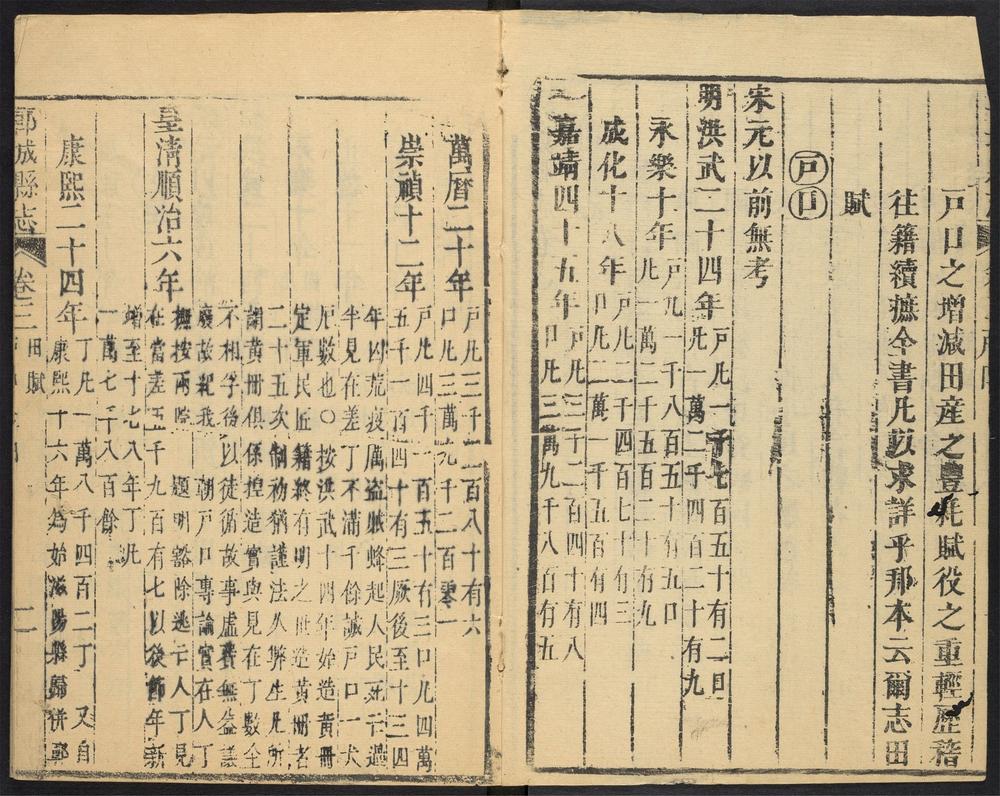 戸口之增減田産之豐耗賦役之重輕歷稽
往籍續撫全書凡玆求詳乎邦本云爾志田
賦
戸口
宋元以前無考
明洪武二十四年戸凡一千七百五十有二口
凡一萬二千四百二十有九
永樂十年戸凡一千八百五十有五口
凡一萬二千五百三十有九
成化十八年戸凡二千四百七十有三
口凡二萬一千五百有四
嘉靖四十五年戸凡三千二百四十有八
口凡三萬九千八百有五
萬曆二十年戸凡三千二百八十有六
口凡三萬九千二百零一
崇禎十二年戸凡四千一百五十有三口凡四萬
五千一百四十有三厥後至十三四
年凶荒疫厲盜賊蜂起人民死亡過
半見在差丁不滿千餘誠戸口一大
厄數也○按洪武十四年始造黃冊
定軍民匠籍終有明之世造黃冊者
二十五次制初猶謹法久弊生凡所
謂黃冊俱係捏造實與見在丁數全
不相孚後以徒循故事虛費無益議
廢故紀我朝戸口專論實在人丁
皇清順治六年撫按兩院題明豁除逃亡人丁見
在當差五千九百有七以後節年新
增至十七八年丁凡
一萬七千八百餘
康熙二十四年丁凡一萬八千四百二丁又自
康熙十六年為始滋陽縣歸併郭
城縣志
卷三
田賦
二